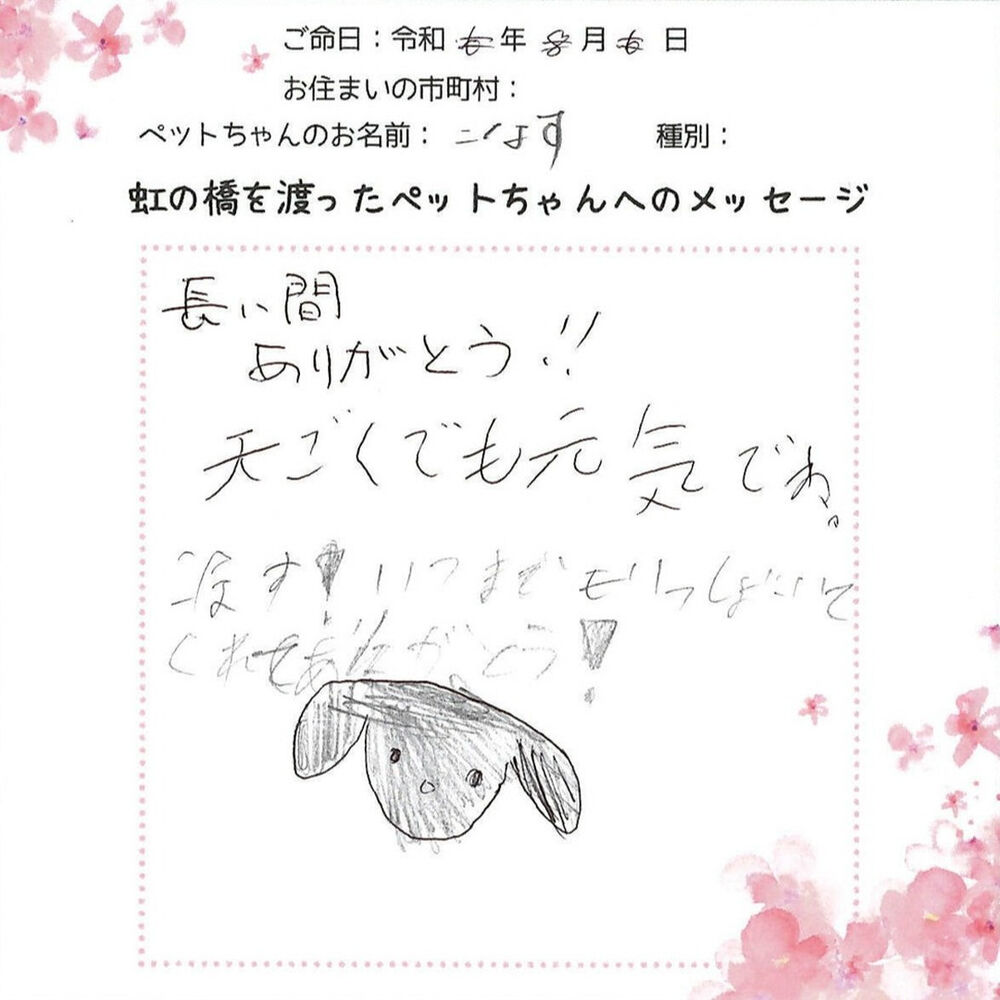 ご命日：令和 年 月 日
お住まいの市町村：
ペットちゃんのお名前： こなす 種別：
虹の橋を渡ったペットちゃんへのメッセージ
長い間
ありがとう!!
天ごくでも元気でね。
いつまでも
くれて